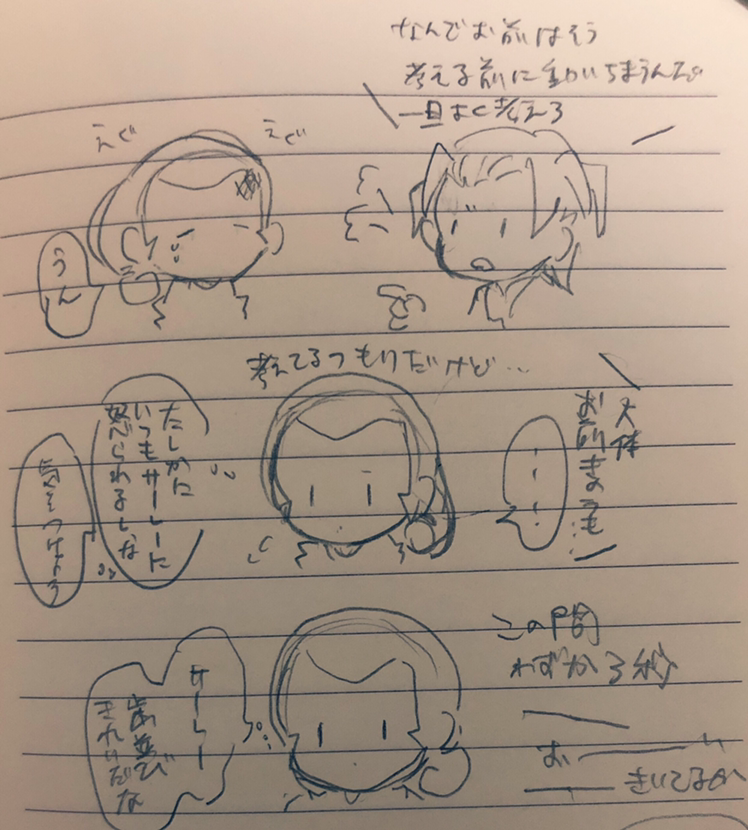 なんでお前はそう
考える前に動いちまうんだ
一旦よく考えろ
えぐ
えぐ
うん
考えてるつもりだけど…
大体
お前きのうも…
・・・
たしかに
いつもサーレーに
怒られるしな
気をつけよう
この間
わずか3秒
サーレー
歯並び
きれいだな
おーーーい
きいてるか